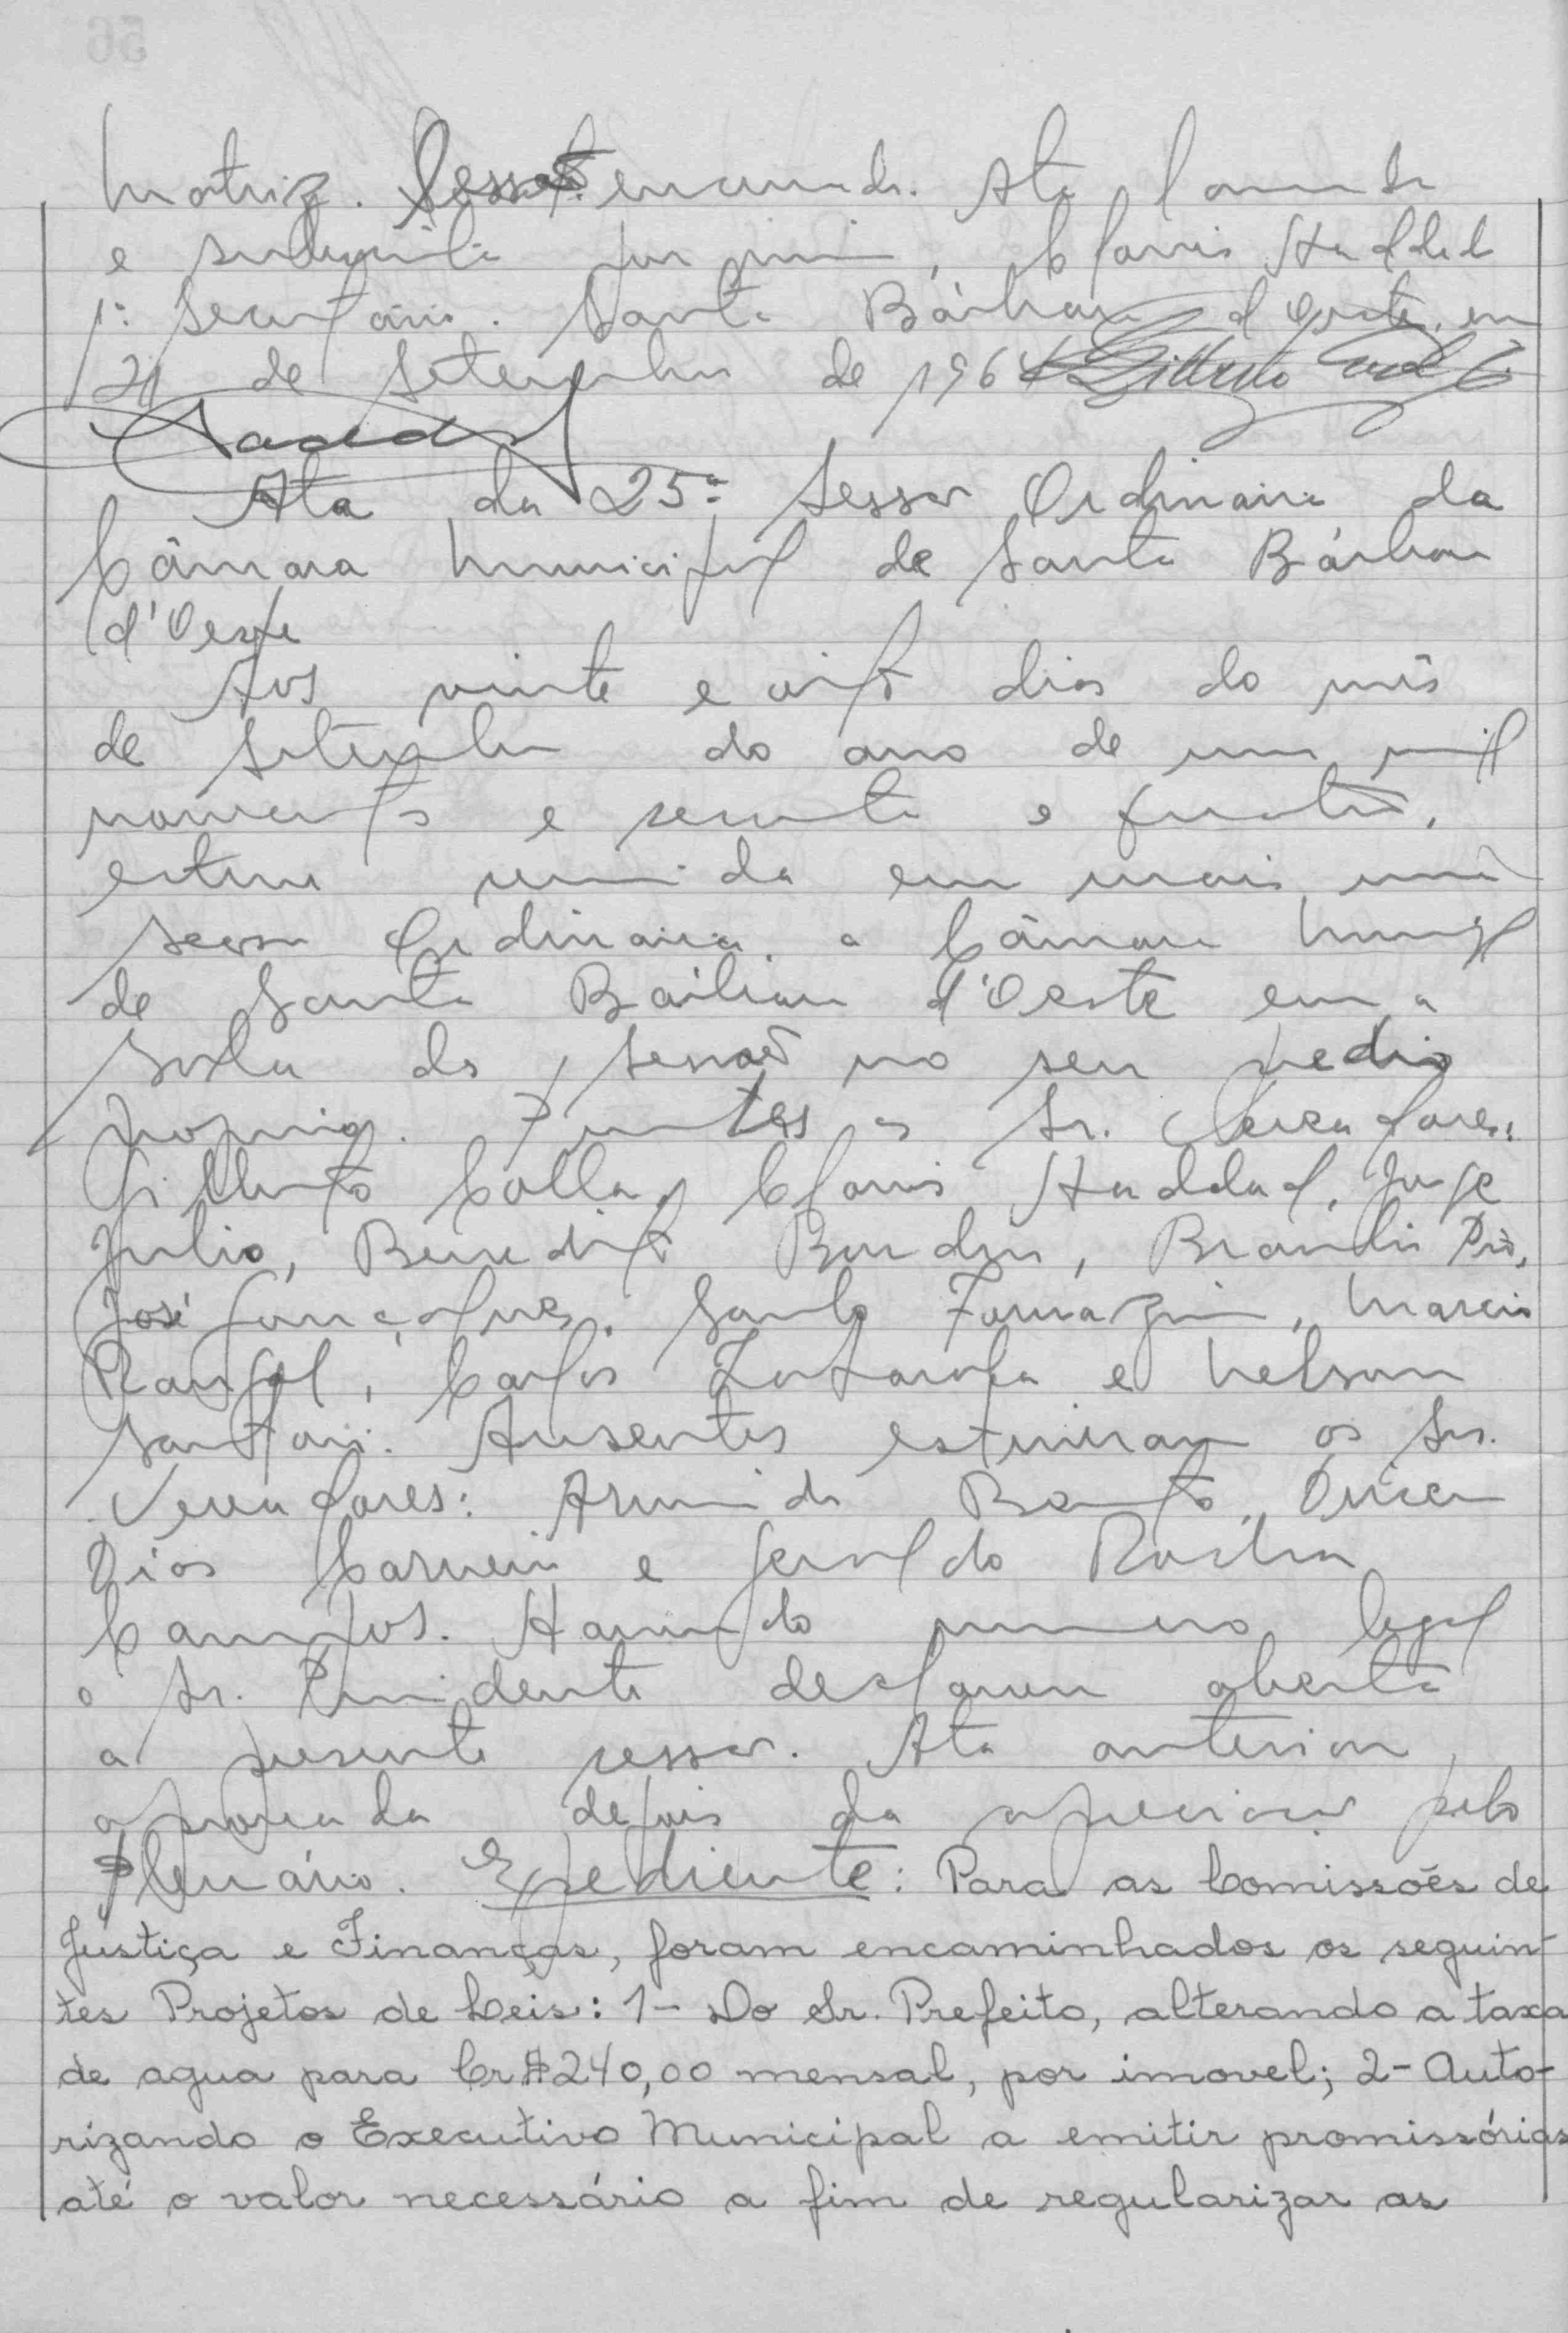 Matriz. Sessão encerrada. Ata lavrada
e subscrita por mim, Clovis Haddad
1º Secretário. Santa Bárbara d'Oeste, em
21 de Setembro de 1964
Ata da 25ª Sessão Ordinaria da
Câmara Municipal de Santa Bárbara
d'Oeste
Aos vinte e oito dias do mês
de Setembro do ano de um mil
novecentos e sessenta e quatro,
esteve reunida em mais uma
sessão Ordinaria a Câmara Munipl
de Santa Bárbara d'Oeste em a
Sala de Sessões no seu predio
proprio. Presentes os Sr. Vereadores:
Gilberto Colla, Clovis Haddad, Jorge
Julio, Benedito Bordon, Brandis Pio,
José Gonçalves, Santo Fornazin, Marcio
Rangel, Carlos Lotarola e Nelson
Santoni. Ausentes estiveram os Srs.
Vereadores: Armindo Bento,
Dias Carneiro e Geraldo Rocha
Campos. Havendo numero legal
o Sr. Presidente declarou aberta
a presente sessão. Ata anterior,
aprovada depois da apreciação pelo
Plenário. Expediente: Para as Comissões de
Justiça e Finanças, foram encaminhados os seguin-
tes Projetos de Leis: 1- Do Sr. Prefeito, alterando a taxa
de agua para Cr$240,00 mensal, por imovel; 2- Auto-
rizando o Executivo Municipal a emitir promissórias
até o valor necessário a fim de regularizar as